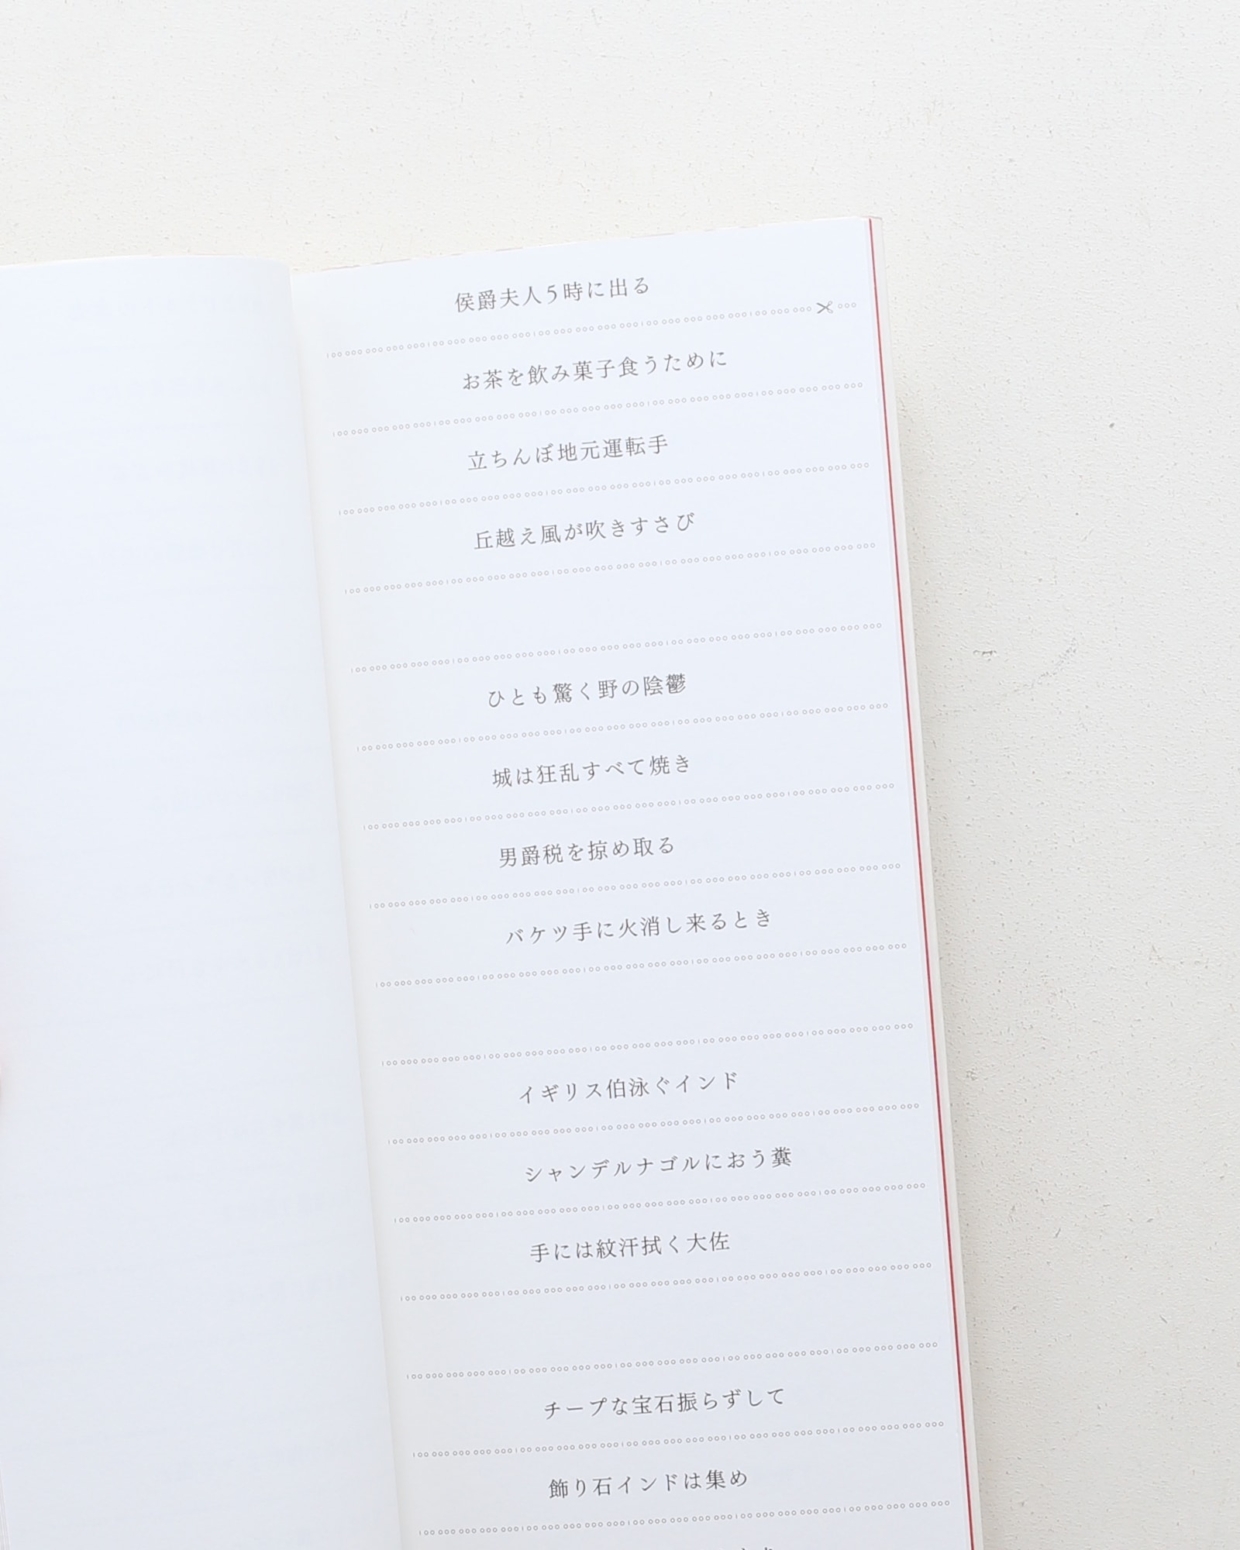 侯爵夫人5時に出る
お茶を飲み菓子食うために
立ちんぼ地元運転手
丘越え風が吹きすさび
ひとも驚く野の陰鬱
城は狂乱すべて焼き
男爵税を掠め取る
バケツ手に火消し来るとき
イギリス伯泳ぐインド
シャンデルナゴルにおう糞
手には紋汗拭く大佐
チープな宝石振らずして
飾り石インドは集め